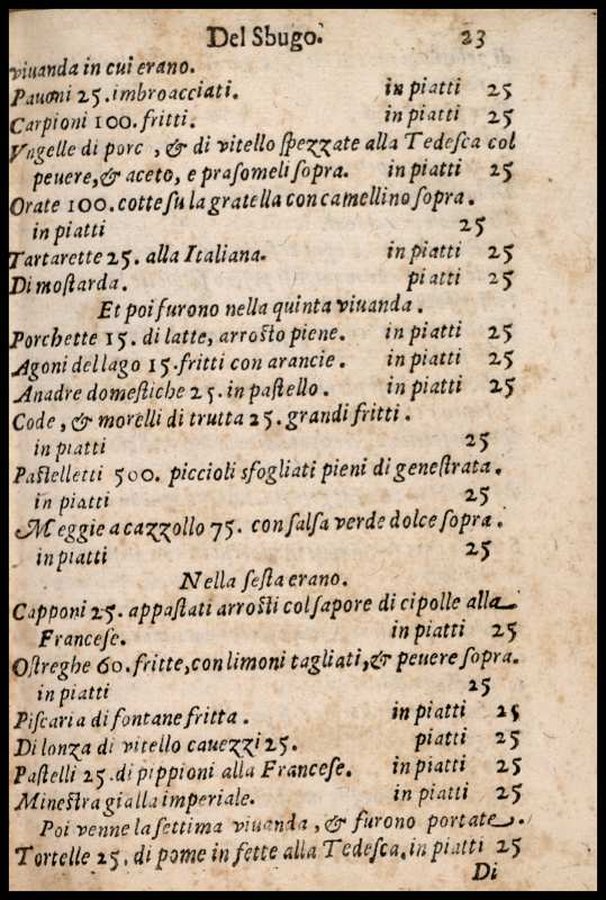 Del Sbugo. 23
viuanda in cui erano.
Pauoni 25. imbroacciati. in piatti 25
Carpioni 100. fritti. in piatti 25
Vngelle di porc , & di vitello spezzate alla Tedesca col
peuere, & aceto, e prasomeli sopra. in piatti 25
Orate 100. cotte su la gratella con camellino sopra.
in piatti 25
Tartarette 25. alla Italiana. in piatti 25
Di mostarda. piatti 25
Et poi furono nella quinta viuanda.
Porchette 15. di latte, arrosto piene. in piatti 25
Agoni del lago 15. fritti con arancie. in piatti 25
Anadre domestiche 25. in pastello. in piatti 25
Code, & morelli di trutta 25. grandi fritti.
in piatti 25
Pastelletti 500. piccioli sfogliati pieni di genestrata.
in piatti 25
Meggie a cazzollo 75. con salsa verde dolce sopra.
in piatti 25
Nella sesta erano.
Capponi 25. appastati arrosti col sapore di cipolle alla
Francese. in piatti 25
Ostreghe 60. fritte, con limoni tagliati, & peuere sopra.
in piatti 25
Piscaria di fontane fritta. in piatti 25
Di lonza di vitello cauezzi 25. piatti 25
Pastelli 25. di pippioni alla Francese. in piatti 25
Minestra gialla imperiale. in piatti 25
Poi venne la settima viuanda, & furono portate.
Tortelle 25. di pome in fette alla Tedesca. in piatti 25
Di